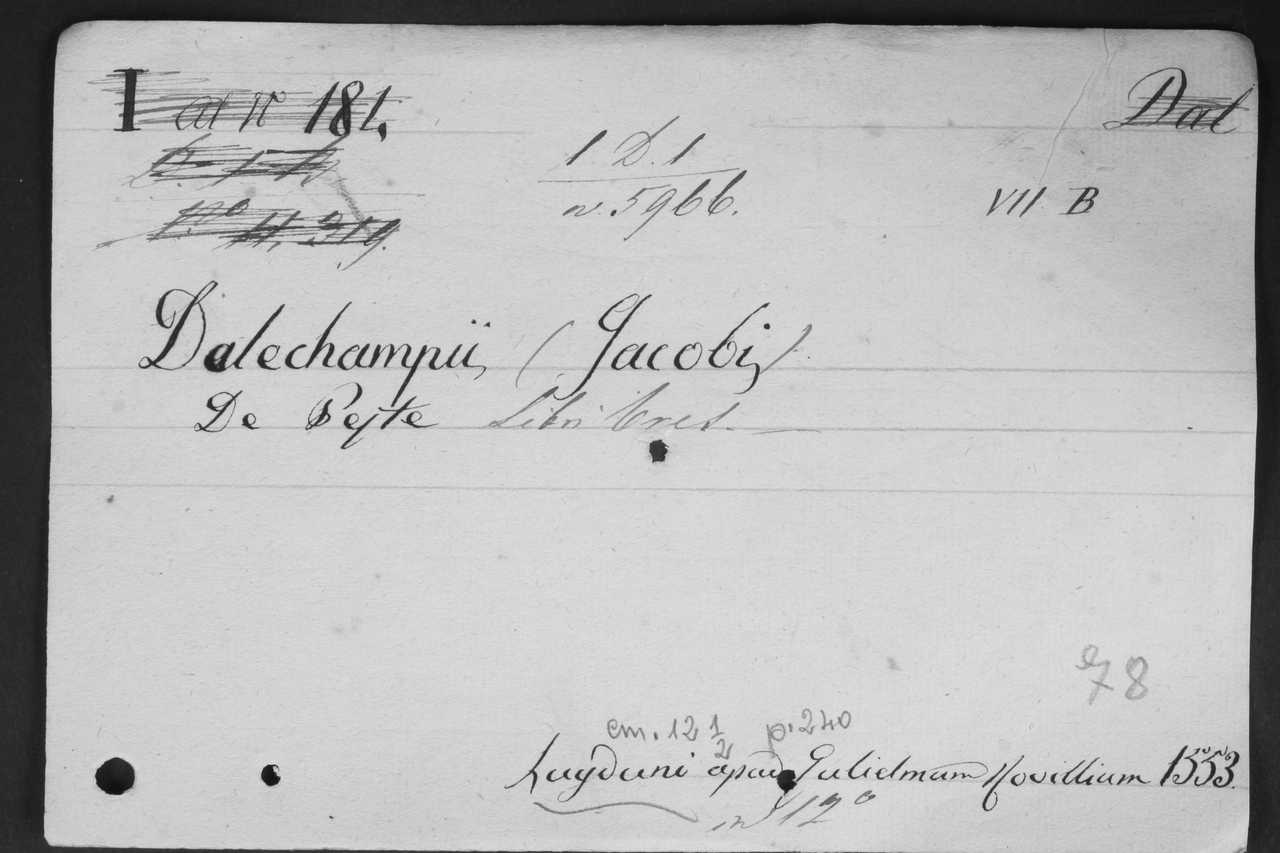 I at n° 181. Dal
1. D. 1
n. 5966. VII B
N° H. 319.
Dalechampii, (Jacobi)
De Peste Libri tres.
78
cm. 12 1/2 p. 240
Lugduni apud Gulielmum Rovillium 1553.
in 12°